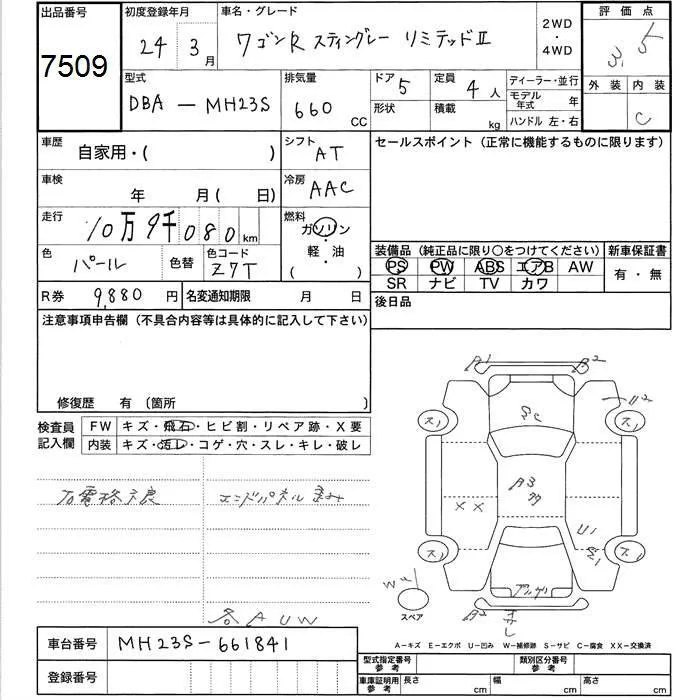 出品番号 初度登録年月 車名・グレード 2WD・4WD 評価点
7509 24年 3月 ワゴンR スティングレー リミテッドⅡ 3.5
型式 排気量 ドア 5 定員 4人 ディーラー・並行 外装 内装
DBA-MH23S 660 CC 形状 積載 kg モデル年式 年 C
ハンドル 左・右
車歴 自家用・( ) シフト AT セールスポイント(正常に機能するものに限ります)
車検 年 月( 日) 冷房 AAC
走行 10万9千080km 燃料 ガソリン・軽・油 ( )
色 パール 色替 色コード Z7T
装備品(純正品に限り○をつけてください) 新車保証書
PS PW ABS エアB AW 有・無
SR ナビ TV カワ
R券 9,880円 名変通知期限 月 日 後日品
注意事項申告欄(不具合内容等は具体的に記入して下さい)
修復歴 有〔箇所 〕
検査員記入欄 FW キズ・飛石・ヒビ割・リペア跡・X要
内装 キズ・汚レ・コゲ・穴・スレ・キレ・破レ
右電格不良 エンドパネル歪み
各AUW
A1 A2
U2
スI スI
A3
XX
U1
スI スI
W
スペア
A2
車台番号 MH23S-661841
登録番号
A-キズ E-エクボ U-凹み W-補修跡 S-サビ C-腐食 XX-交換済
型式指定番号 参考 類別区分番号 参考
車庫証明用 参考 長さ cm 幅 cm 高さ cm